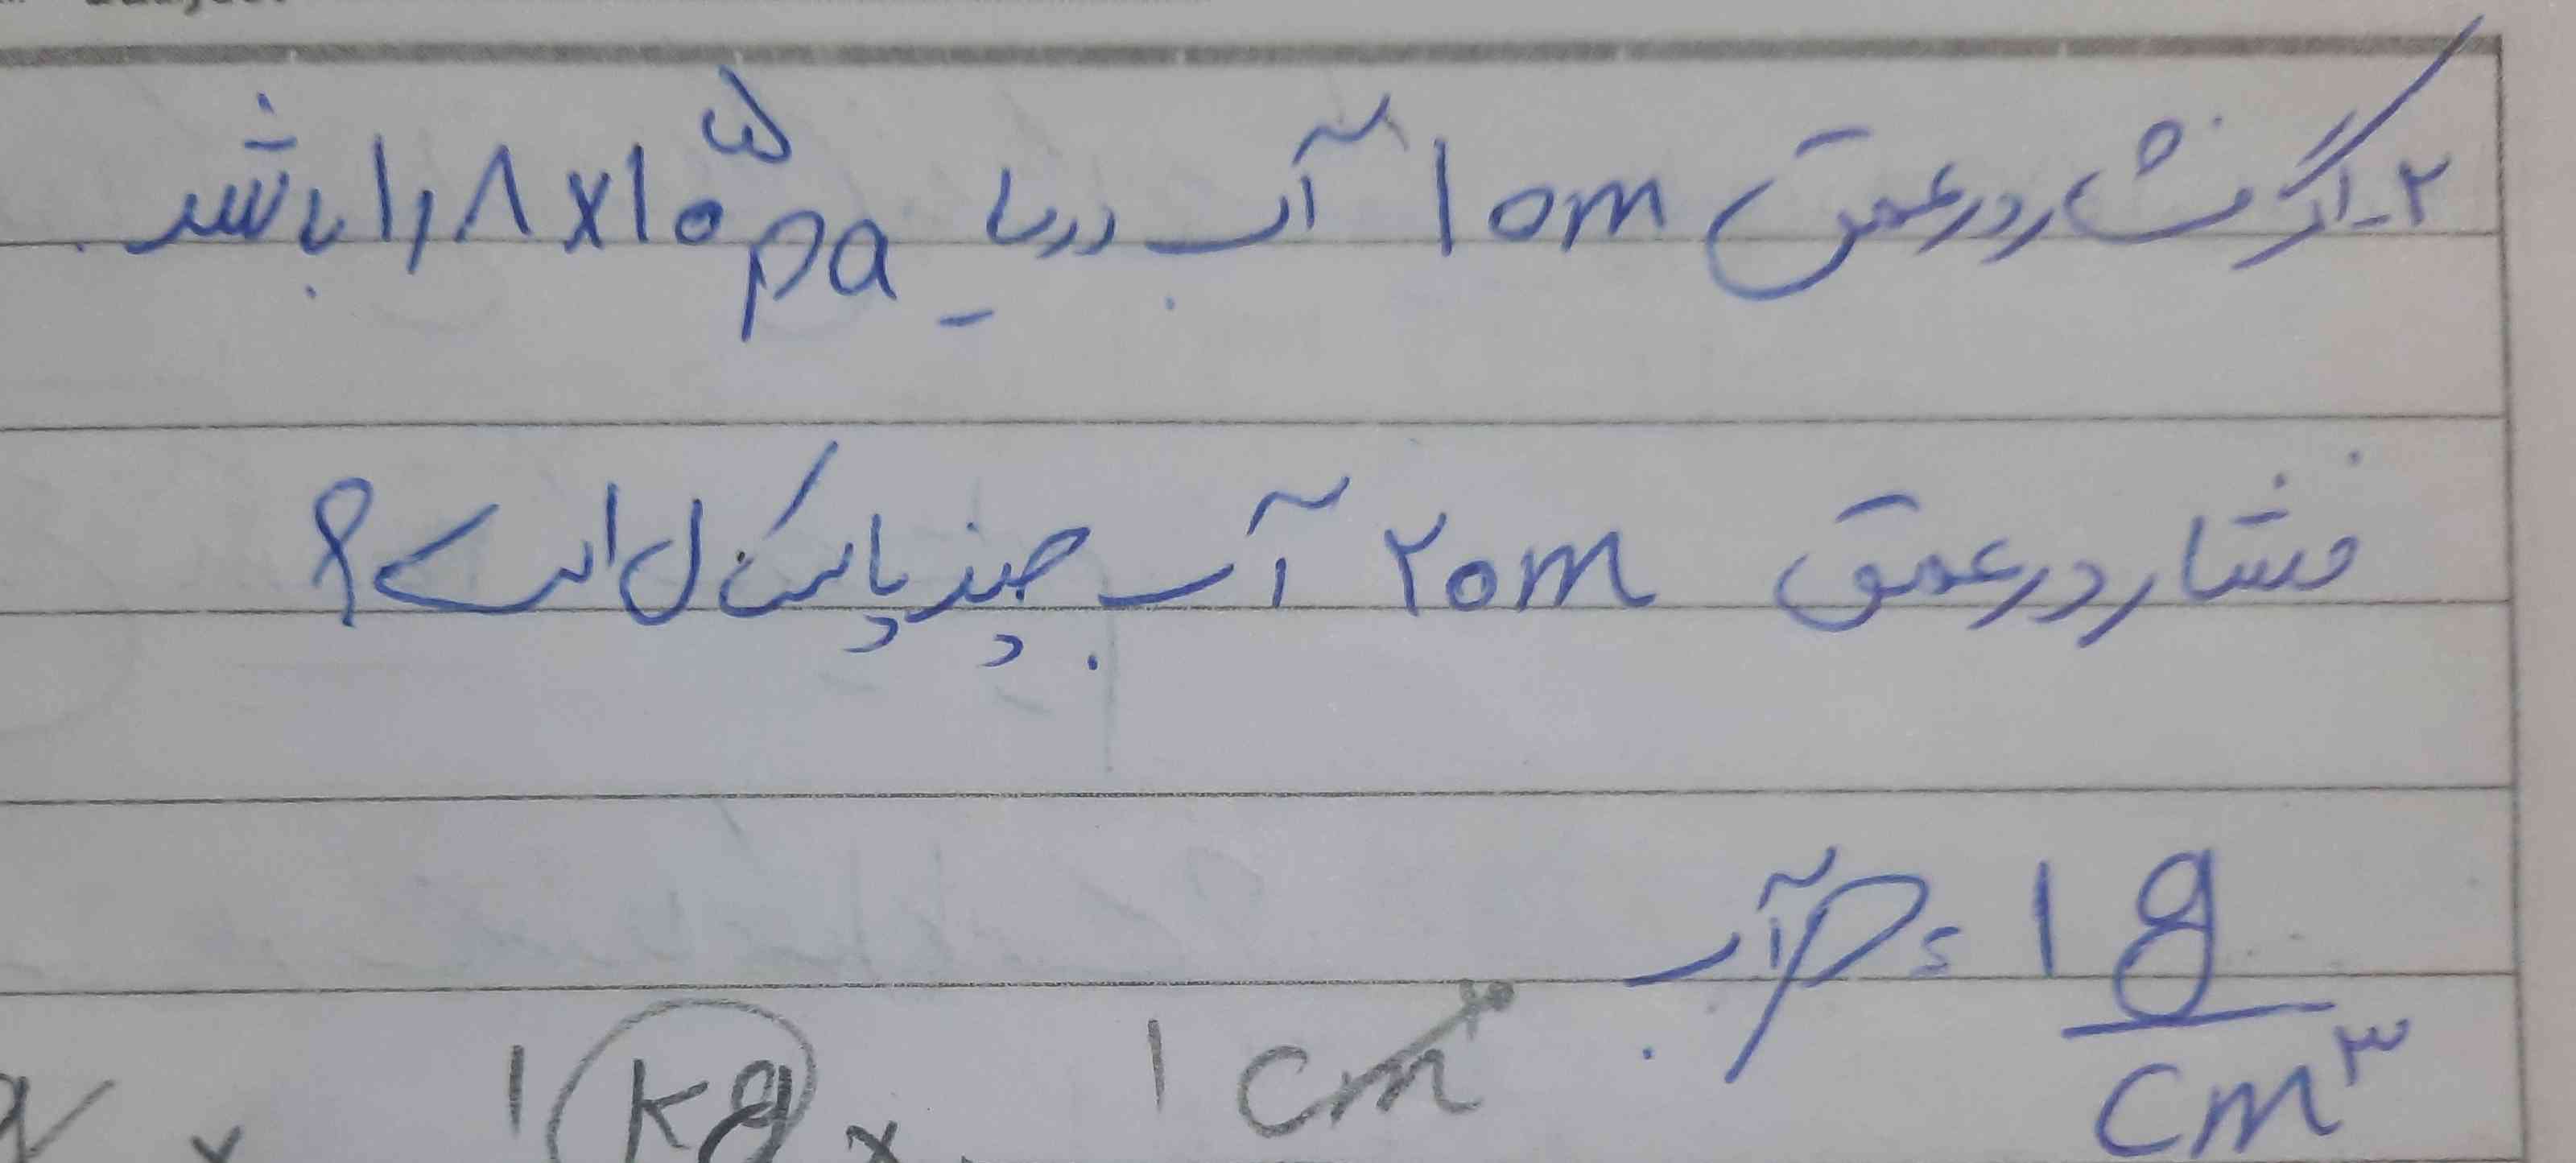 ۲- اگر فشار در عمق ۱۰m آب دریا ۱٫۸×۱۰^۵ pa باشد.
فشار در عمق ۲۰m آب چند پاسکال است؟
ρآب = ۱ g/cm^۳
× ۱ kg × ۱ cm